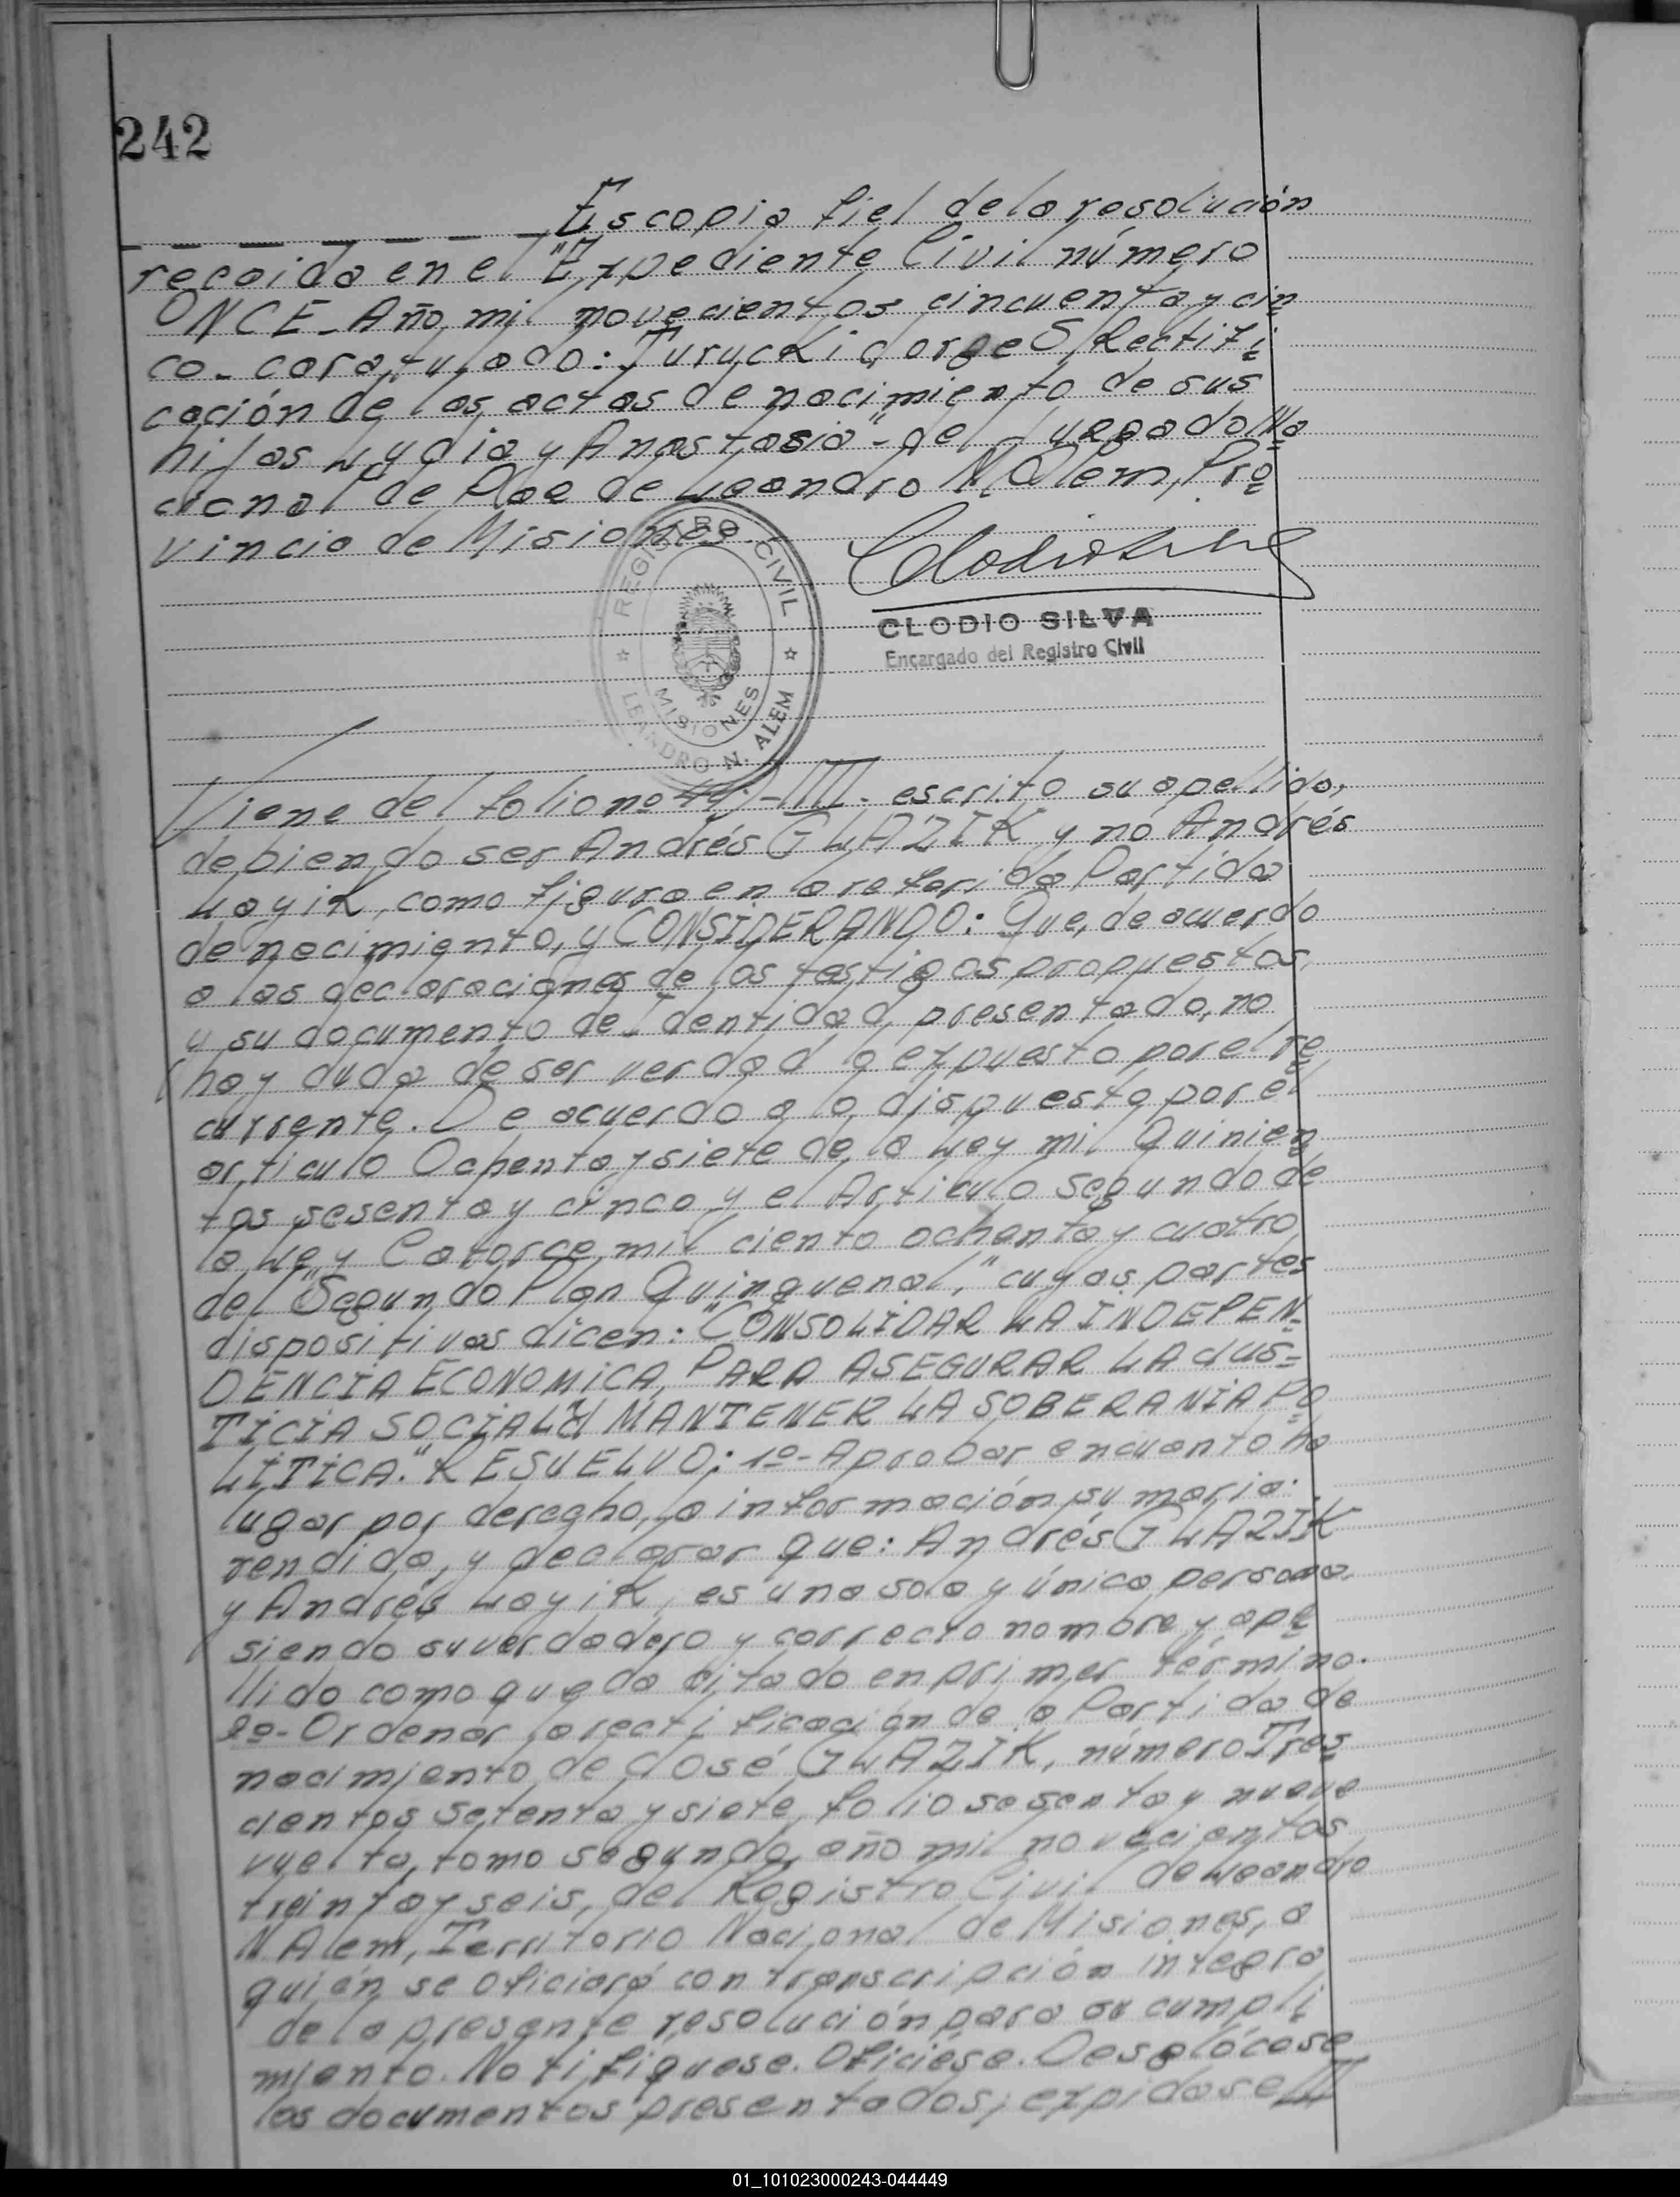 242
Es copia fiel de la resolución
recaida en el "Expediente Civil número
ONCE - Año mil novecientos cincuenta y cin
co - caratulado: Turucki Jorge S/ Rectifi
cación de las actas de nacimiento de sus
hijas Lydia y Anastasia" - del Juzgado Na
cional de Paz de Leandro N. Alem, Pro
vincia de Misiones.
REGISTRO CIVIL
MISIONES
LEANDRO N. ALEM
CLODIO SILVA
Encargado del Registro Civil
Viene del folio nº - IIII - escrito su apellido,
debiendo ser Andrés GLAZIK y nó Andrés
Layik, como figura en la referida Partida
de nacimiento, y CONSIDERANDO: Que, de acuerdo
a las declaraciones de los testigos propuestos,
y su documento de Identidad, presentado, no
hay duda de ser verdad lo expuesto por el re
currente. De acuerdo a lo dispuesto por el
artículo Ochenta y siete de la Ley mil Quinien
tos sesenta y cinco y el Artículo segundo de
la Ley Catorce mil ciento ochenta y cuatro
del "Segundo Plan Quinquenal," cuyas partes
dispositivas dicen: "CONSOLIDAR LA INDEPEN-
DENCIA ECONOMICA, PARA ASEGURAR LA JUS-
TICIA SOCIAL Y MANTENER LA SOBERANIA PO
LITICA." RESUELVO: 1º - Aprobar en cuanto ha
lugar por derecho, la información sumaria
rendida, y declarar que: Andrés GLAZIK
y Andrés Layik, es una sola y única persona,
siendo su verdadero y correcto nombre y ape
llido como queda citado en primer término.
2º - Ordenar la rectificación de la Partida de
nacimiento de José GLAZIK, número Tres
cientos setenta y siete, folio sesenta y nueve
vuelta, tomo segundo, año mil novecientos
treinta y seis, del Registro Civil de Leandro
N. Alem, Territorio Nacional de Misiones, a
quién se oficiará con transcripción íntegra
de la presente resolución para su cumpli
miento. Notifíquese. Ofíciese. Desglócase
los documentos presentados; expídase III
01_101023000243-044449